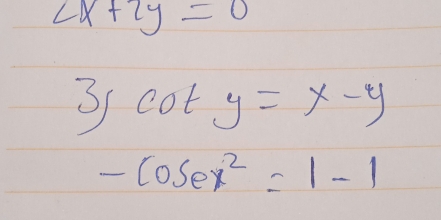 2x+2y = 0
3) cot y = x - y
- Cosex² = 1 - 1